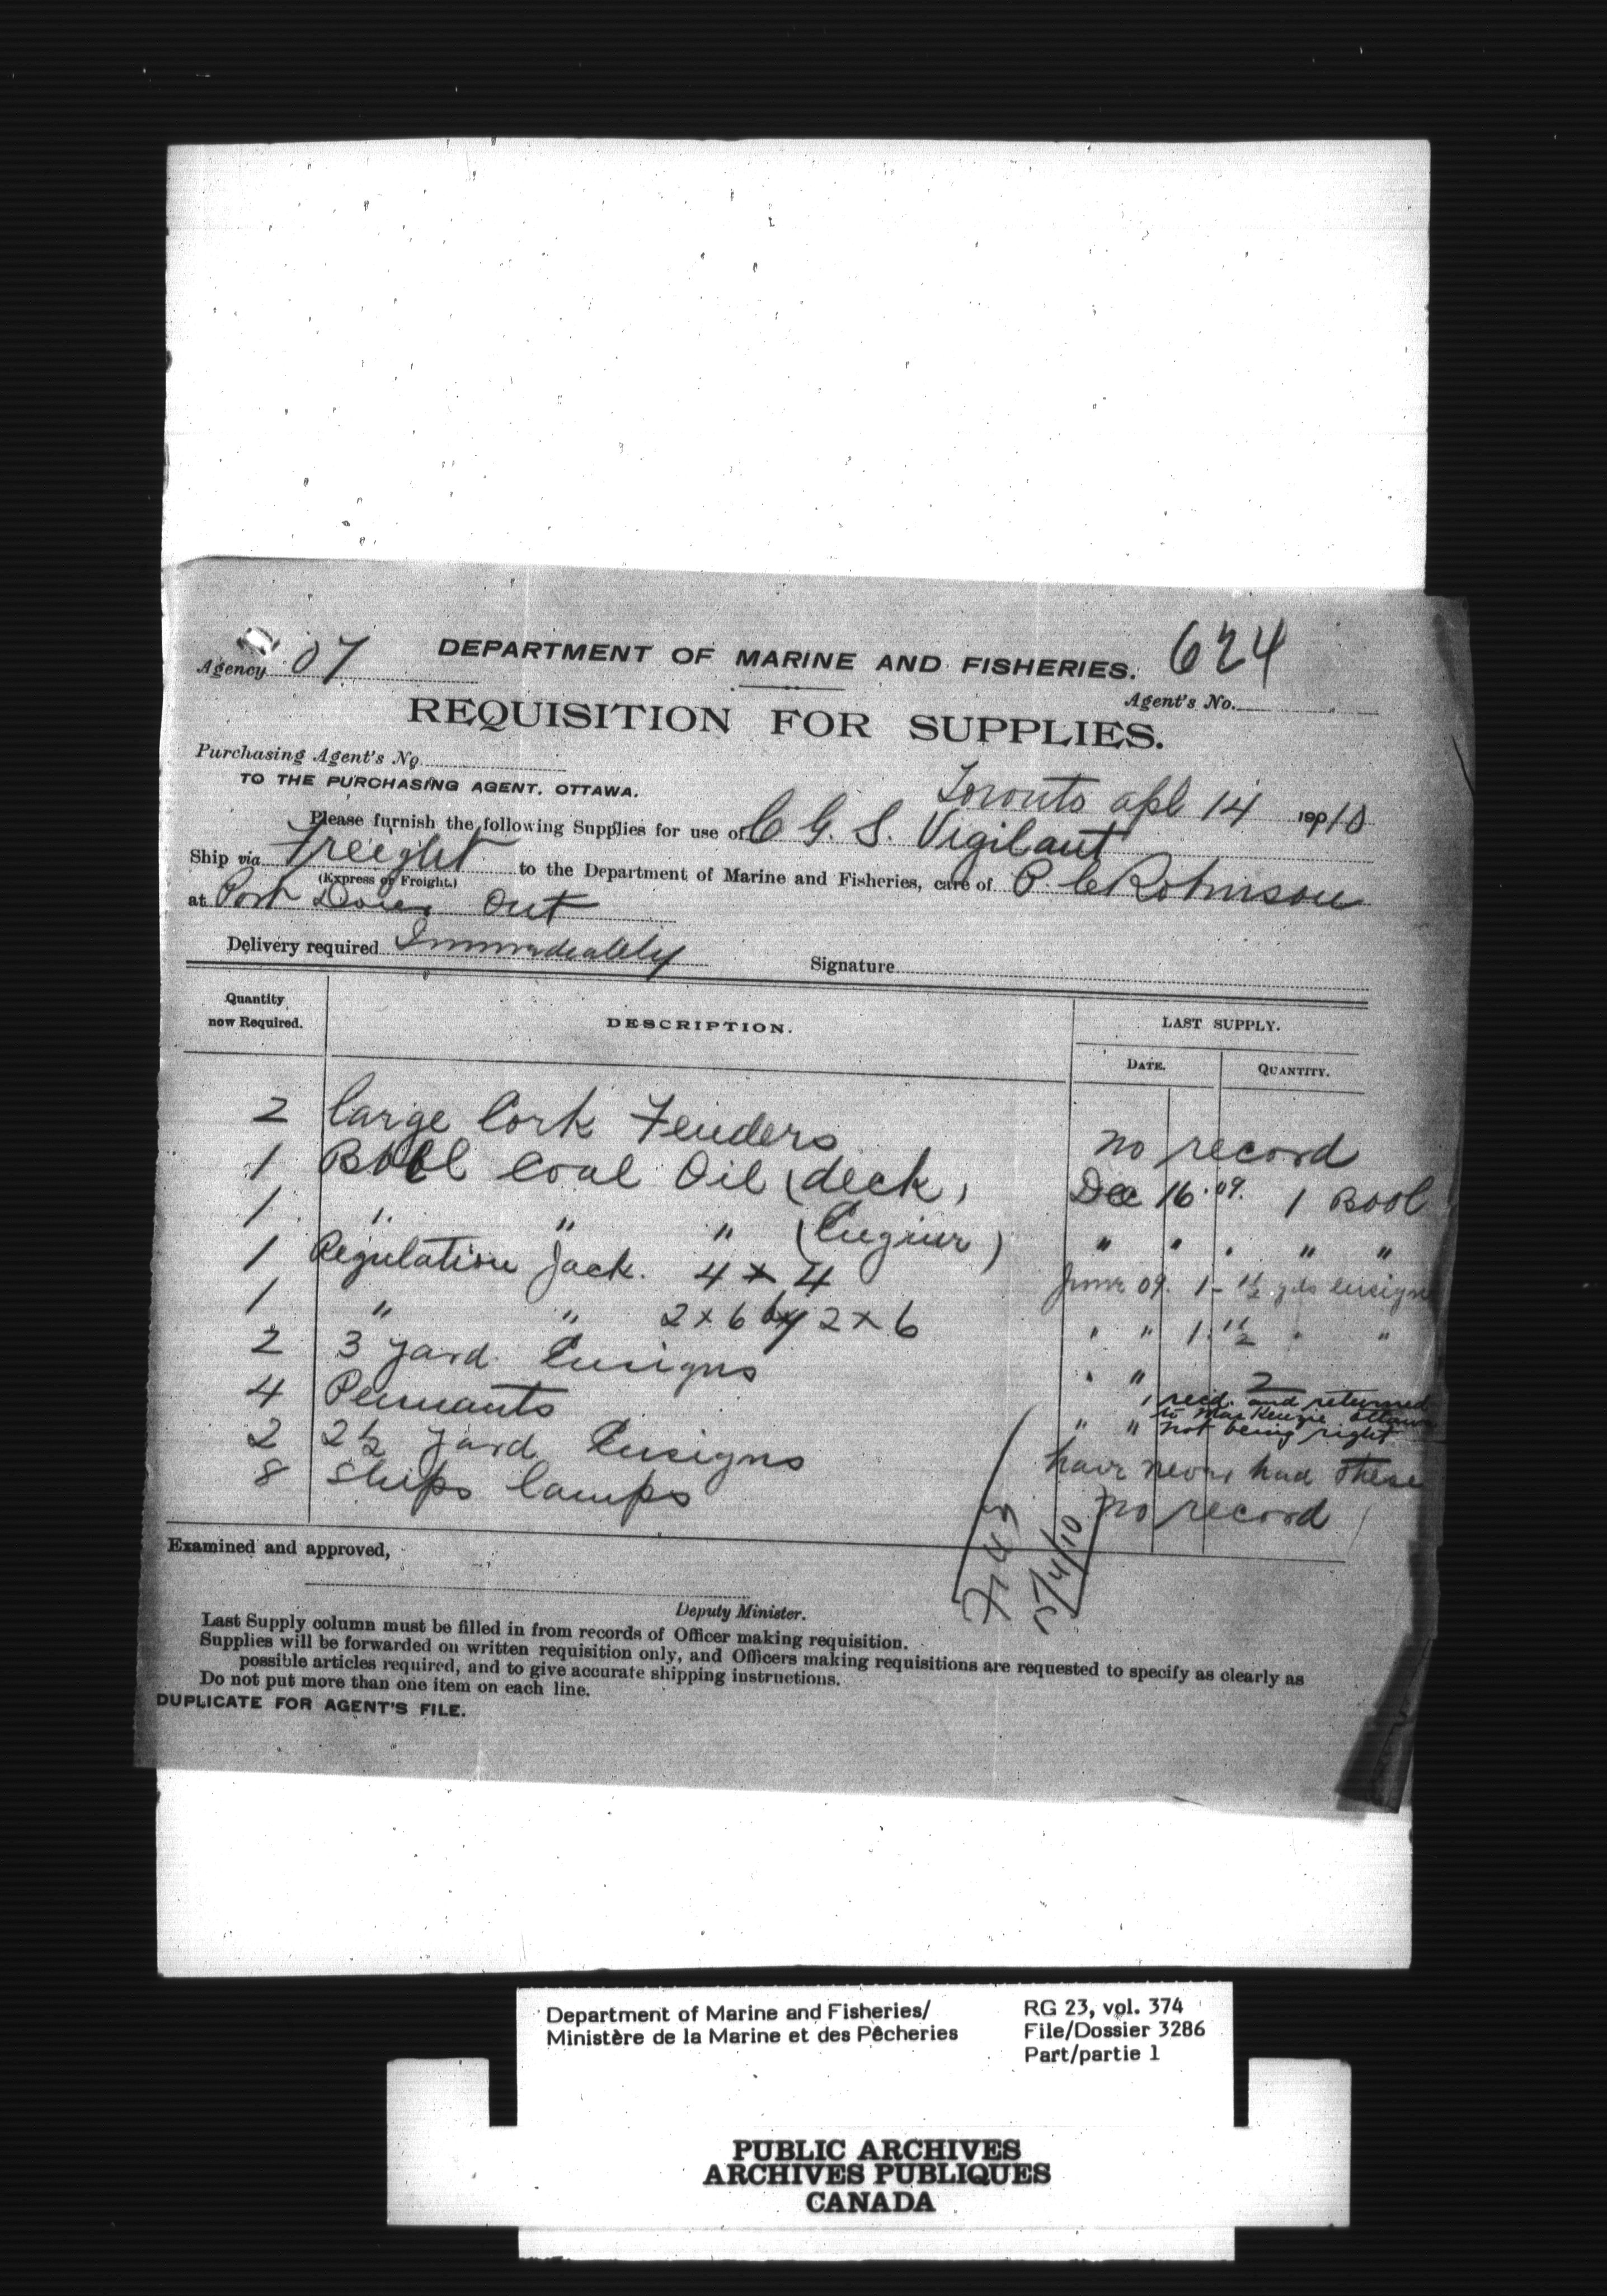 Agency 07 DEPARTMENT OF MARINE AND FISHERIES. 624
Agent's No.
REQUISITION FOR SUPPLIES.
Purchasing Agent's No.
TO THE PURCHASING AGENT, OTTAWA.
Toronto Apl 14 19010
Please furnish the following Supplies for use of C G. S. Vigilant
Ship via Freight to the Department of Marine and Fisheries, care of P. C Robinson
(Express or Freight.)
at Port Dover Ont
Delivery required Immadeatly
Signature
Quantity now Required. DESCRIPTION. LAST SUPPLY.
DATE. QUANTITY.
2 large Cork Fenders no record
1 Bbl Coal Oil (deck) Dec 16 · 09. 1 Bbl
1 " " " (Engineer) " " " " "
1 Regulation Jack. 4 x 4 June 09. 1 - 1½ yds ensign
1 " " 2 x 6 by 2 x 6 " " 1. 1½ " "
2 3 yard Ensigns " " 2
4 Pennants " " recd. and returned
to MacKenzie Ottawa
not being right
2 2½ yard Ensigns have never had these
8 Ships lamps no record
Examined and approved,
Deputy Minister.
Last Supply column must be filled in from records of Officer making requisition.
Supplies will be forwarded on written requisition only, and Officers making requisitions are requested to specify as clearly as
possible articles required, and to give accurate shipping instructions.
Do not put more than one item on each line.
DUPLICATE FOR AGENT'S FILE.
Department of Marine and Fisheries/
Ministère de la Marine et des Pêcheries
RG 23, vol. 374
File/Dossier 3286
Part/partie 1
PUBLIC ARCHIVES
ARCHIVES PUBLIQUES
CANADA